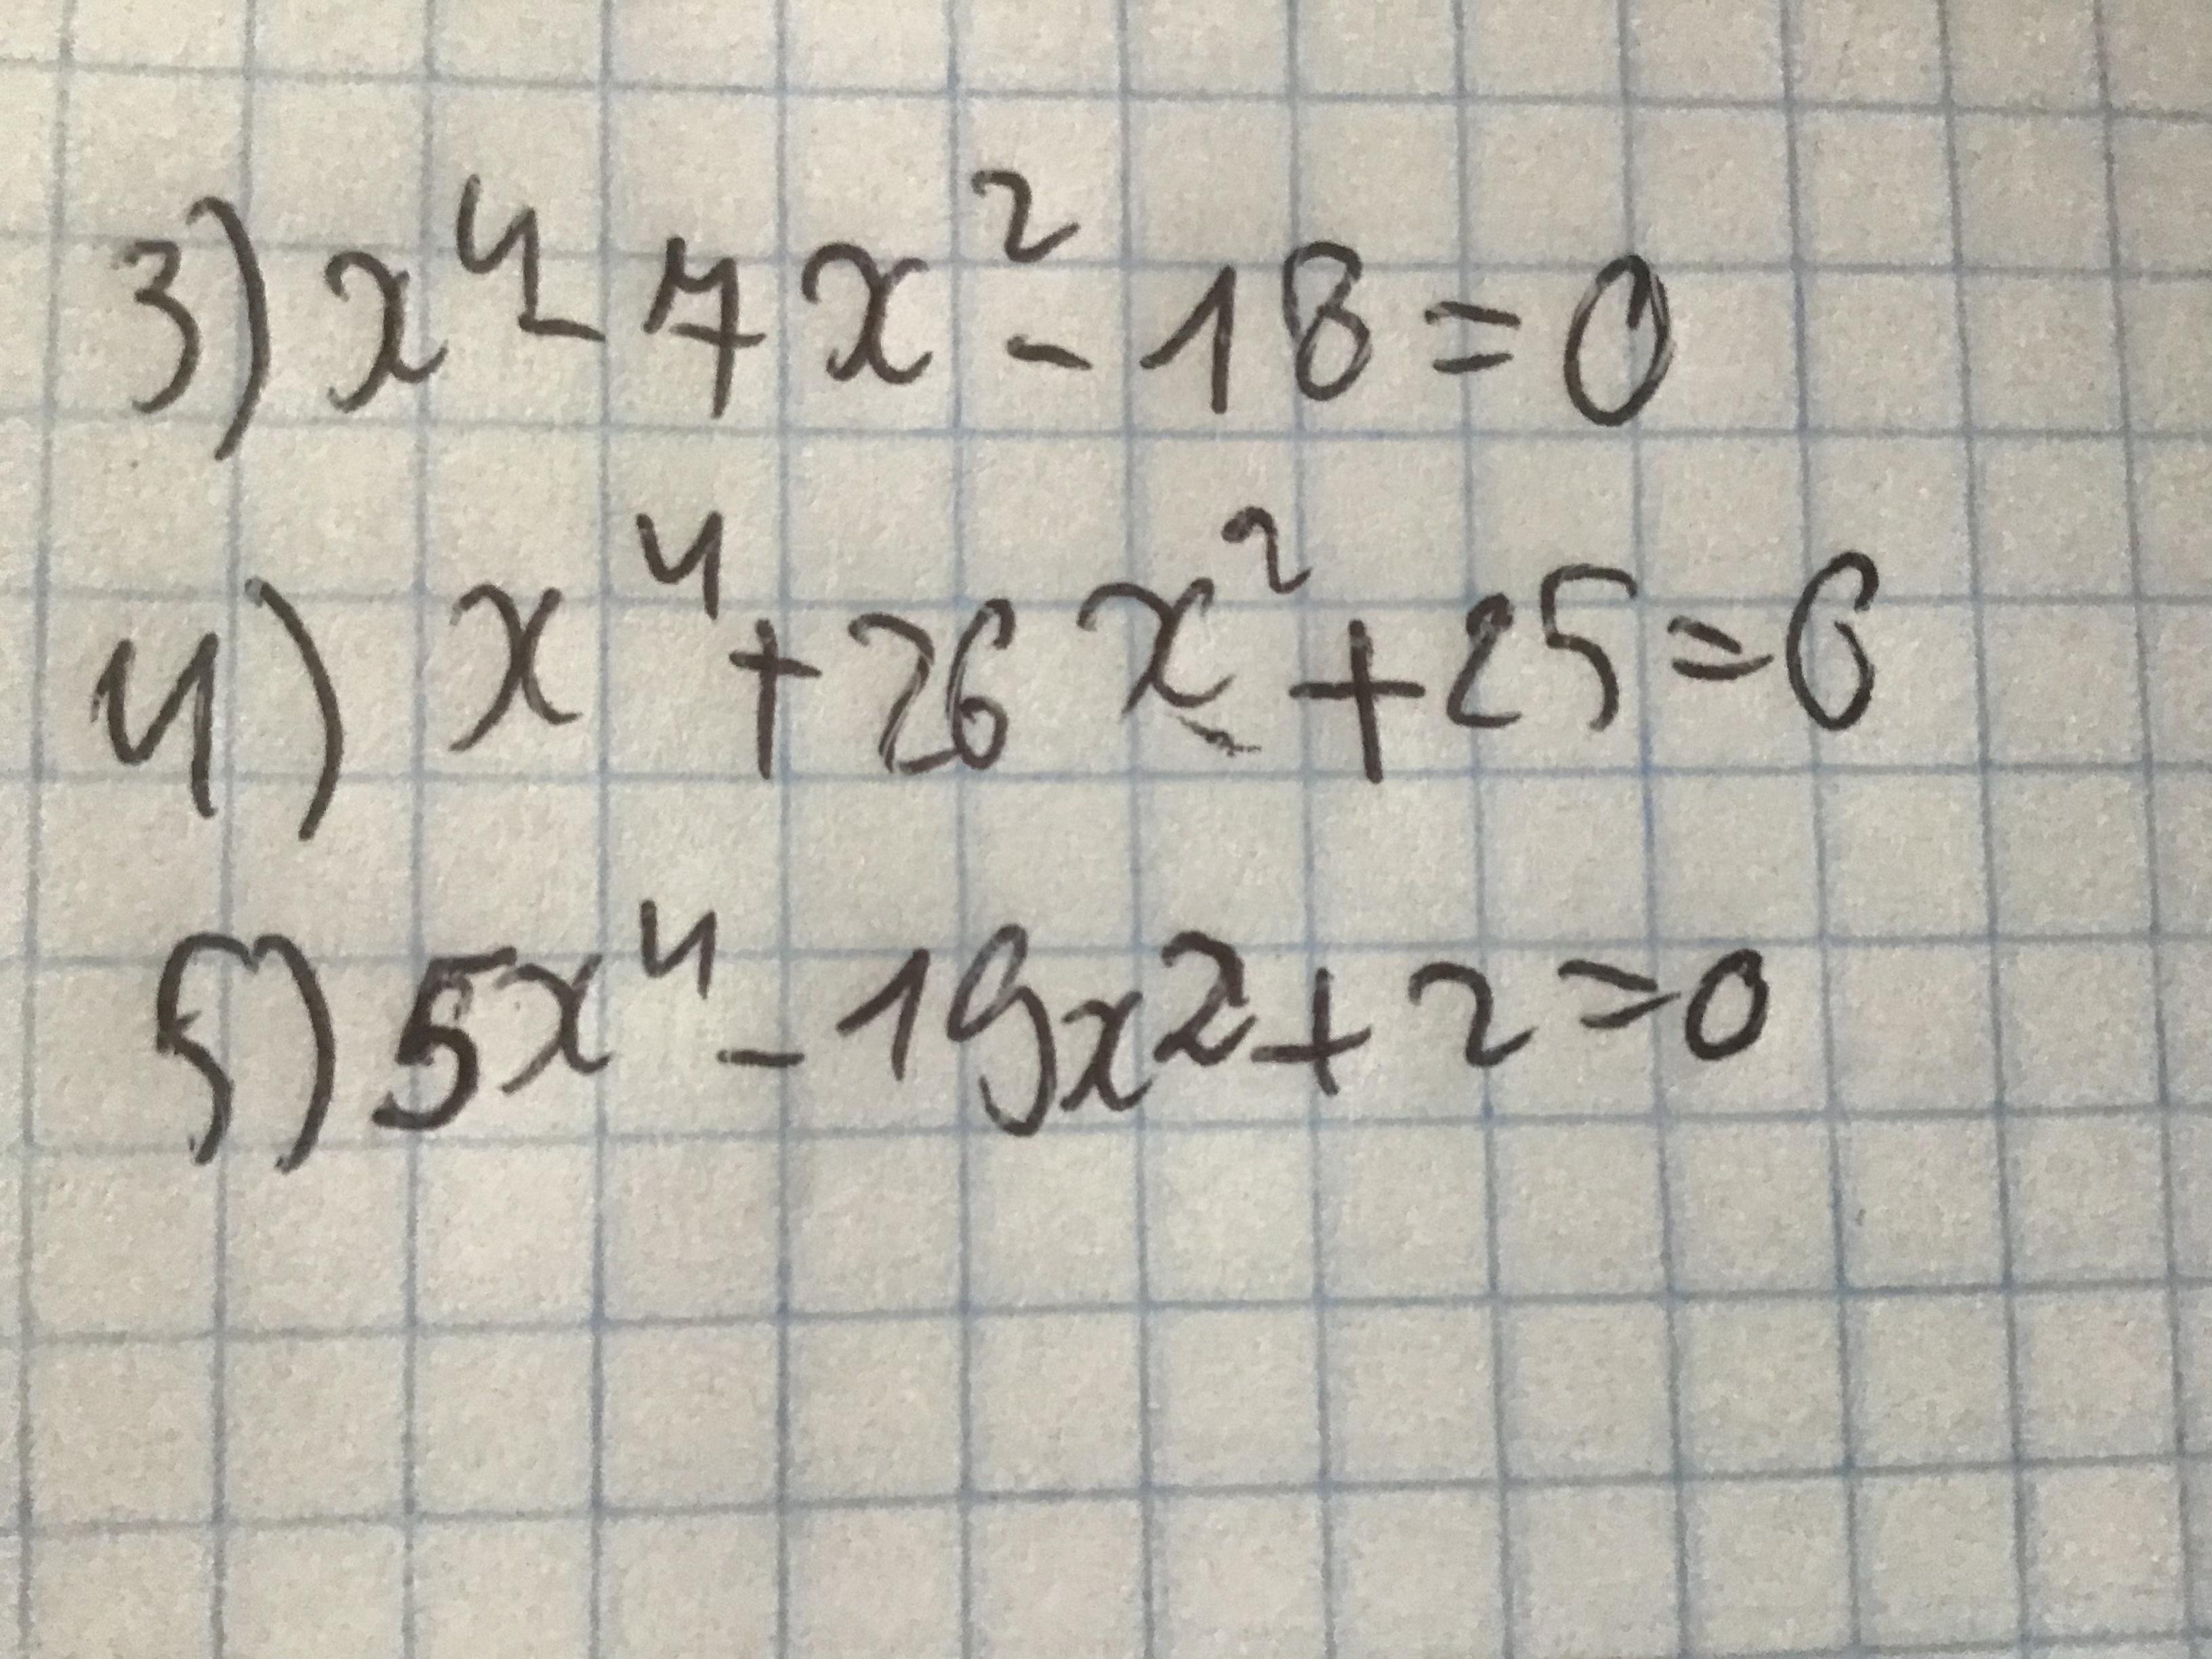 3) x⁴ - 7x² - 18 = 0
4) x⁴ + 26x² + 25 = 0
5) 5x⁴ - 19x2 + 2 = 0